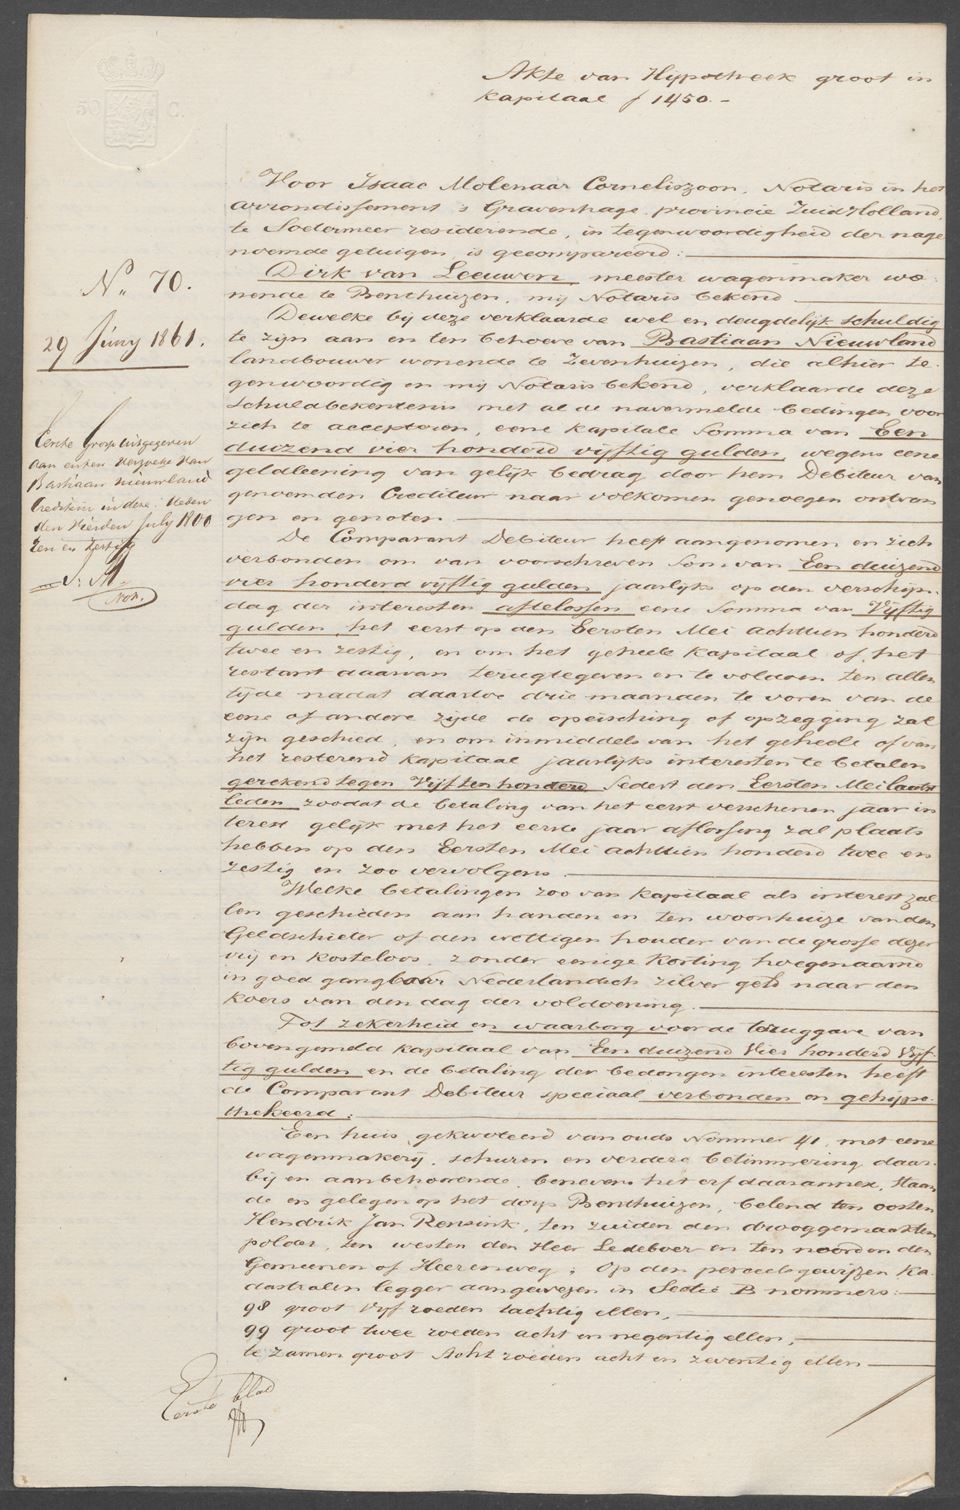 50 C.
Akte van Hypotheek groot in
kapitaal f 1450.-
Voor Isaac Molenaar Corneliszoon, Notaris in het
arrondissement 's Gravenhage, provincie Zuid Holland,
te Soetermeer residerende, in tegenwoordigheid der nage
noemde getuigen is gecompareerd:
Dirk van Leeuwen, meester wagenmaker wo-
nende te Benthuizen, mij Notaris bekend
Dewelke bij deze verklaarde wel en deugdelijk schuldig
te zijn aan en ten behoeve van Bastiaan Nieuwland
landbouwer wonende te Zevenhuizen, die alhier te-
genwoordig en mij Notaris bekend, verklaarde deze
schuldbekentenis met al de navermelde bedingen voor
zich te accepteren, eene kapitale Somma van Een
duizend vier honderd vijftig gulden, wegens eene
geldleening van gelijk bedrag door hem Debiteur van
genoemden Crediteur naar volkomen genoegen ontvan
gen en genoten
De Comparant Debiteur heeft aangenomen en zich
verbonden om van voorschreven Som van Een duizend
vier honderd vijftig gulden jaarlijks op den verschijn-
dag der interesten aftelossen eene Somma van Vijftig
gulden, het eerst op den Eersten Mei achttien honderd
twee en zestig, en om het geheele kapitaal of het
restant daarvan terugtegeven en te voldoen ten allen
tijde nadat daartoe drie maanden te voren van de
eene of andere zijde de opeisching of opzegging zal
zijn geschied, en om inmiddels van het geheele of van
het resterend kapitaal jaarlijks interesten te betalen
gerekend tegen Vijf ten honderd sedert den Eersten Mei laatst
leden zoodat de betaling van het eerst verschenen jaar in
terest gelijk met het eerste jaar aflossing zal plaats
hebben op den Eersten Mei achttien honderd twee en
zestig en zoo vervolgens.
Welke betalingen zoo van kapitaal als interest zul
len geschieden aan handen en ten woonhuize van den
Geldschieter of den wettigen houder van de grosse dezer
vrij en kosteloos, zonder eenige korting hoegenaamd
in goed gangbaar Nederlandsch zilver geld naar den
koers van den dag der voldoening.
Tot zekerheid en waarborg voor de teruggave van
bovengemeld kapitaal van Een duizend Vier honderd Vijf
tig gulden en de betaling der bedongen interesten heeft
de Comparant Debiteur speciaal verbonden en gehypo-
thekeerd:
Een huis, gekwoteerd van ouds Nommer 41, met eene
wagenmakerij, schuren en verdere betimmering daar-
bij en aanbehoorende, benevens het erf daarannex, staan
de en gelegen op het dorp Benthuizen, belend ten oosten
Hendrik Jan Rensink, ten zuiden den drooggemaakten
polder, ten westen den Heer Ledeboer en ten noorden den
Gemeenen of Heerenweg; Op den perceelsgewijzen ka-
dastralen legger aangewezen in Sectie B nommers:
98 groot vijf roeden tachtig ellen,
99 groot twee roeden acht en negentig ellen,
te zamen groot Acht roeden acht en zeventig ellen
No. 70.
29 Juny 1861.
Eerste Grosse uitgegeven
aan en ten verzoeke van
Bastiaan Nieuwland
Crediteur in deze. Heden
den Vierden July 1800
een en zestig
I: M.
Not.
Eerste blad